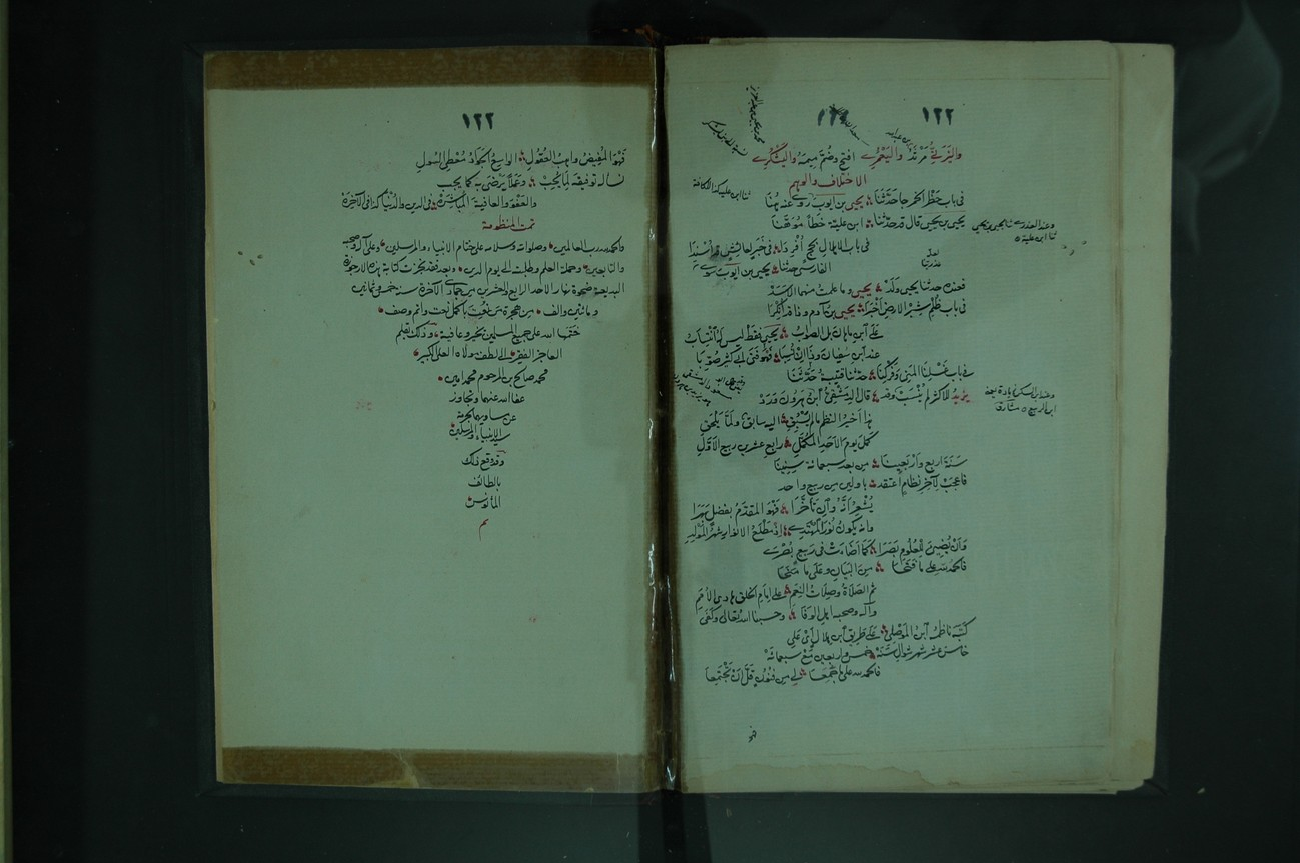 ١٢٢
واليزني مرثد واليعمري افتح وضم ميمه واليشكري
الاختلاف والوهم
في باب حظر الخمر جا حدثنا يحيى بن ايوب روى عنه هنا
يحيى بن يحيى قال قد حدثنا ابن علية خطأ موهنا
في باب الاهلال بحج أفردا في خبر لعائش قد أسندا
الفارسي حدثنا يحيى بن ايوب سوى
فعنده حدثنا يحيى ولد يحيى وما علمت منهما الاسد
في باب ظلم شبر الارض أخبرا يحيى بن آدم وذا قد أنكرا
على ابن ماهان بل الصواب يحيى فقط ليس له انتساب
عند ابن سفيان وذا ان نسبا فهو فتى ابي كثير صوبا
في باب غسلنا المني وفركنا حدثنا قتيبة حدثنا
يزيد للاكثر لم ينسب وقد قال الدمشقي ابن هرون فقد
ذا آخر النظم لما يسبق اليه سابق ولما يلحق
كمل يوم الاحد المكمل رابع عشري ربيع الاول
سنة اربع واربعينا من بعد سبعمائة سنينا
فاعجب لآخر نظام اعتقد باولين من ربيع واحد
يشعر أنه وان تأخرا فهو المقدم بفضل بهرا
وانه يكون نورا للمهتدي اذ مطلع الانوار شهر المولد
وان يضيء للعلوم بصرا كما أضاءت في ربيع بصرى
فالحمد لله على ما فتحا من البيان وعلى ما منحا
ثم الصلاة وصلات النعم على إمام الخلق هادي الامم
وآله وصحبه اهل الوفا وحسبنا الله تعالى وكفى
كتبه ناظمه ابن الموصلي على طريق ابن هلال بن علي
خامس عشر شهر شوال سنة خمس واربعين مع سبعمائة
فالحمد لله على ما جمعا لي من فنون قل ان تجتمعا
فهو
١٢٣
فهو المفيض واهب العقول الواسع الجواد معطي السول
نساله توفيقه لما يجب وعملا يرضى به كما يجب
والعفو والعافية المباشرة في الدين والدنيا كذا في الآخرة
تمت المنظومة
والحمد لله رب العالمين وصلواته وسلامه على ختام الانبياء والمرسلين وعلى آله وصحبه
والتابعين وحملة العلم وطلبته الى يوم الدين وبعد فقد نجزت كتابة هذه الارجوزة
البديعة ضحوة نهار الاحد الرابع والعشرين من جمادى الآخرة سنة خمس وثمانين
ومائتين والف من هجرة من نعت باكمل نعت واتم وصف
ختمها الله على جميع المسلمين بخير وعافية وذلك بقلم
العاجز الفقير الى لطف مولاه العلي الكبير
محمد صالح بن المرحوم محمد امين
عفا الله عنهما وتجاوز
عن مساويهما بحرمة
سيد الانبياء والمرسلين
وقد وقع ذلك
بالطائف
المأنوس
تم